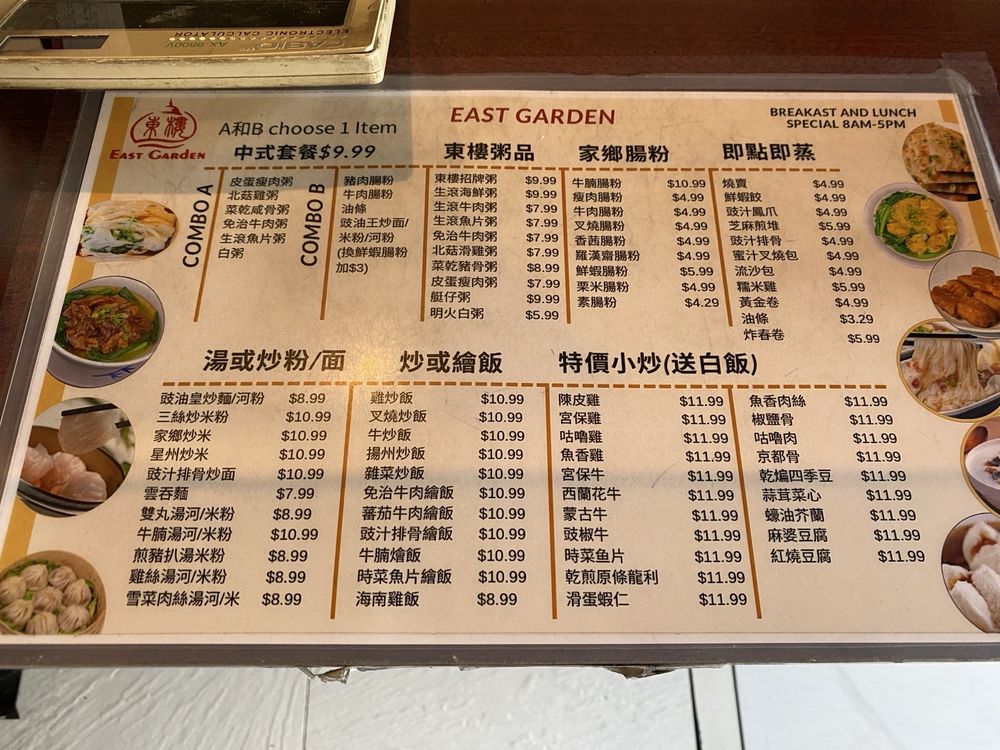 CASIO
ELECTRONIC CALCULATOR
AX-9800V
東樓
EAST GARDEN
EAST GARDEN
BREAKAST AND LUNCH
SPECIAL 8AM-5PM
A和B choose 1 Item
中式套餐$9.99
COMBO A
皮蛋瘦肉粥
北菇雞粥
菜乾咸骨粥
免治牛肉粥
生滾魚片粥
白粥
COMBO B
豬肉腸粉
牛肉腸粉
油條
豉油王炒面/
米粉/河粉
(換鮮蝦腸粉
加$3)
東樓粥品
東樓招牌粥 $9.99
生滾海鮮粥 $9.99
生滾牛肉粥 $7.99
生滾魚片粥 $7.99
免治牛肉粥 $7.99
北菇滑雞粥 $7.99
菜乾豬骨粥 $8.99
皮蛋瘦肉粥 $7.99
艇仔粥 $9.99
明火白粥 $5.99
家鄉腸粉
牛腩腸粉 $10.99
瘦肉腸粉 $4.99
牛肉腸粉 $4.99
叉燒腸粉 $4.99
香茜腸粉 $4.99
羅漢齋腸粉 $4.99
鮮蝦腸粉 $5.99
栗米腸粉 $4.99
素腸粉 $4.29
即點即蒸
燒賣 $4.99
鮮蝦餃 $4.99
豉汁鳳爪 $4.99
芝麻煎堆 $5.99
豉汁排骨 $4.99
蜜汁叉燒包 $4.99
流沙包 $4.99
糯米雞 $5.99
黃金卷 $4.99
油條 $3.29
炸春卷 $5.99
湯或炒粉/面
豉油皇炒麵/河粉 $8.99
三絲炒米粉 $10.99
家鄉炒米 $10.99
星州炒米 $10.99
豉汁排骨炒面 $10.99
雲吞麵 $7.99
雙丸湯河/米粉 $8.99
牛腩湯河/米粉 $10.99
煎豬扒湯米粉 $8.99
雞絲湯河/米粉 $8.99
雪菜肉絲湯河/米 $8.99
炒或繪飯
雞炒飯 $10.99
叉燒炒飯 $10.99
牛炒飯 $10.99
揚州炒飯 $10.99
雜菜炒飯 $10.99
免治牛肉繪飯 $10.99
蕃茄牛肉繪飯 $10.99
豉汁排骨繪飯 $10.99
牛腩燴飯 $10.99
時菜魚片繪飯 $10.99
海南雞飯 $8.99
特價小炒(送白飯)
陳皮雞 $11.99
宮保雞 $11.99
咕嚕雞 $11.99
魚香雞 $11.99
宮保牛 $11.99
西蘭花牛 $11.99
蒙古牛 $11.99
豉椒牛 $11.99
時菜鱼片 $11.99
乾煎原條龍利 $11.99
滑蛋蝦仁 $11.99
魚香肉絲 $11.99
椒鹽骨 $11.99
咕嚕肉 $11.99
京都骨 $11.99
乾煸四季豆 $11.99
蒜茸菜心 $11.99
蠔油芥蘭 $11.99
麻婆豆腐 $11.99
紅燒豆腐 $11.99